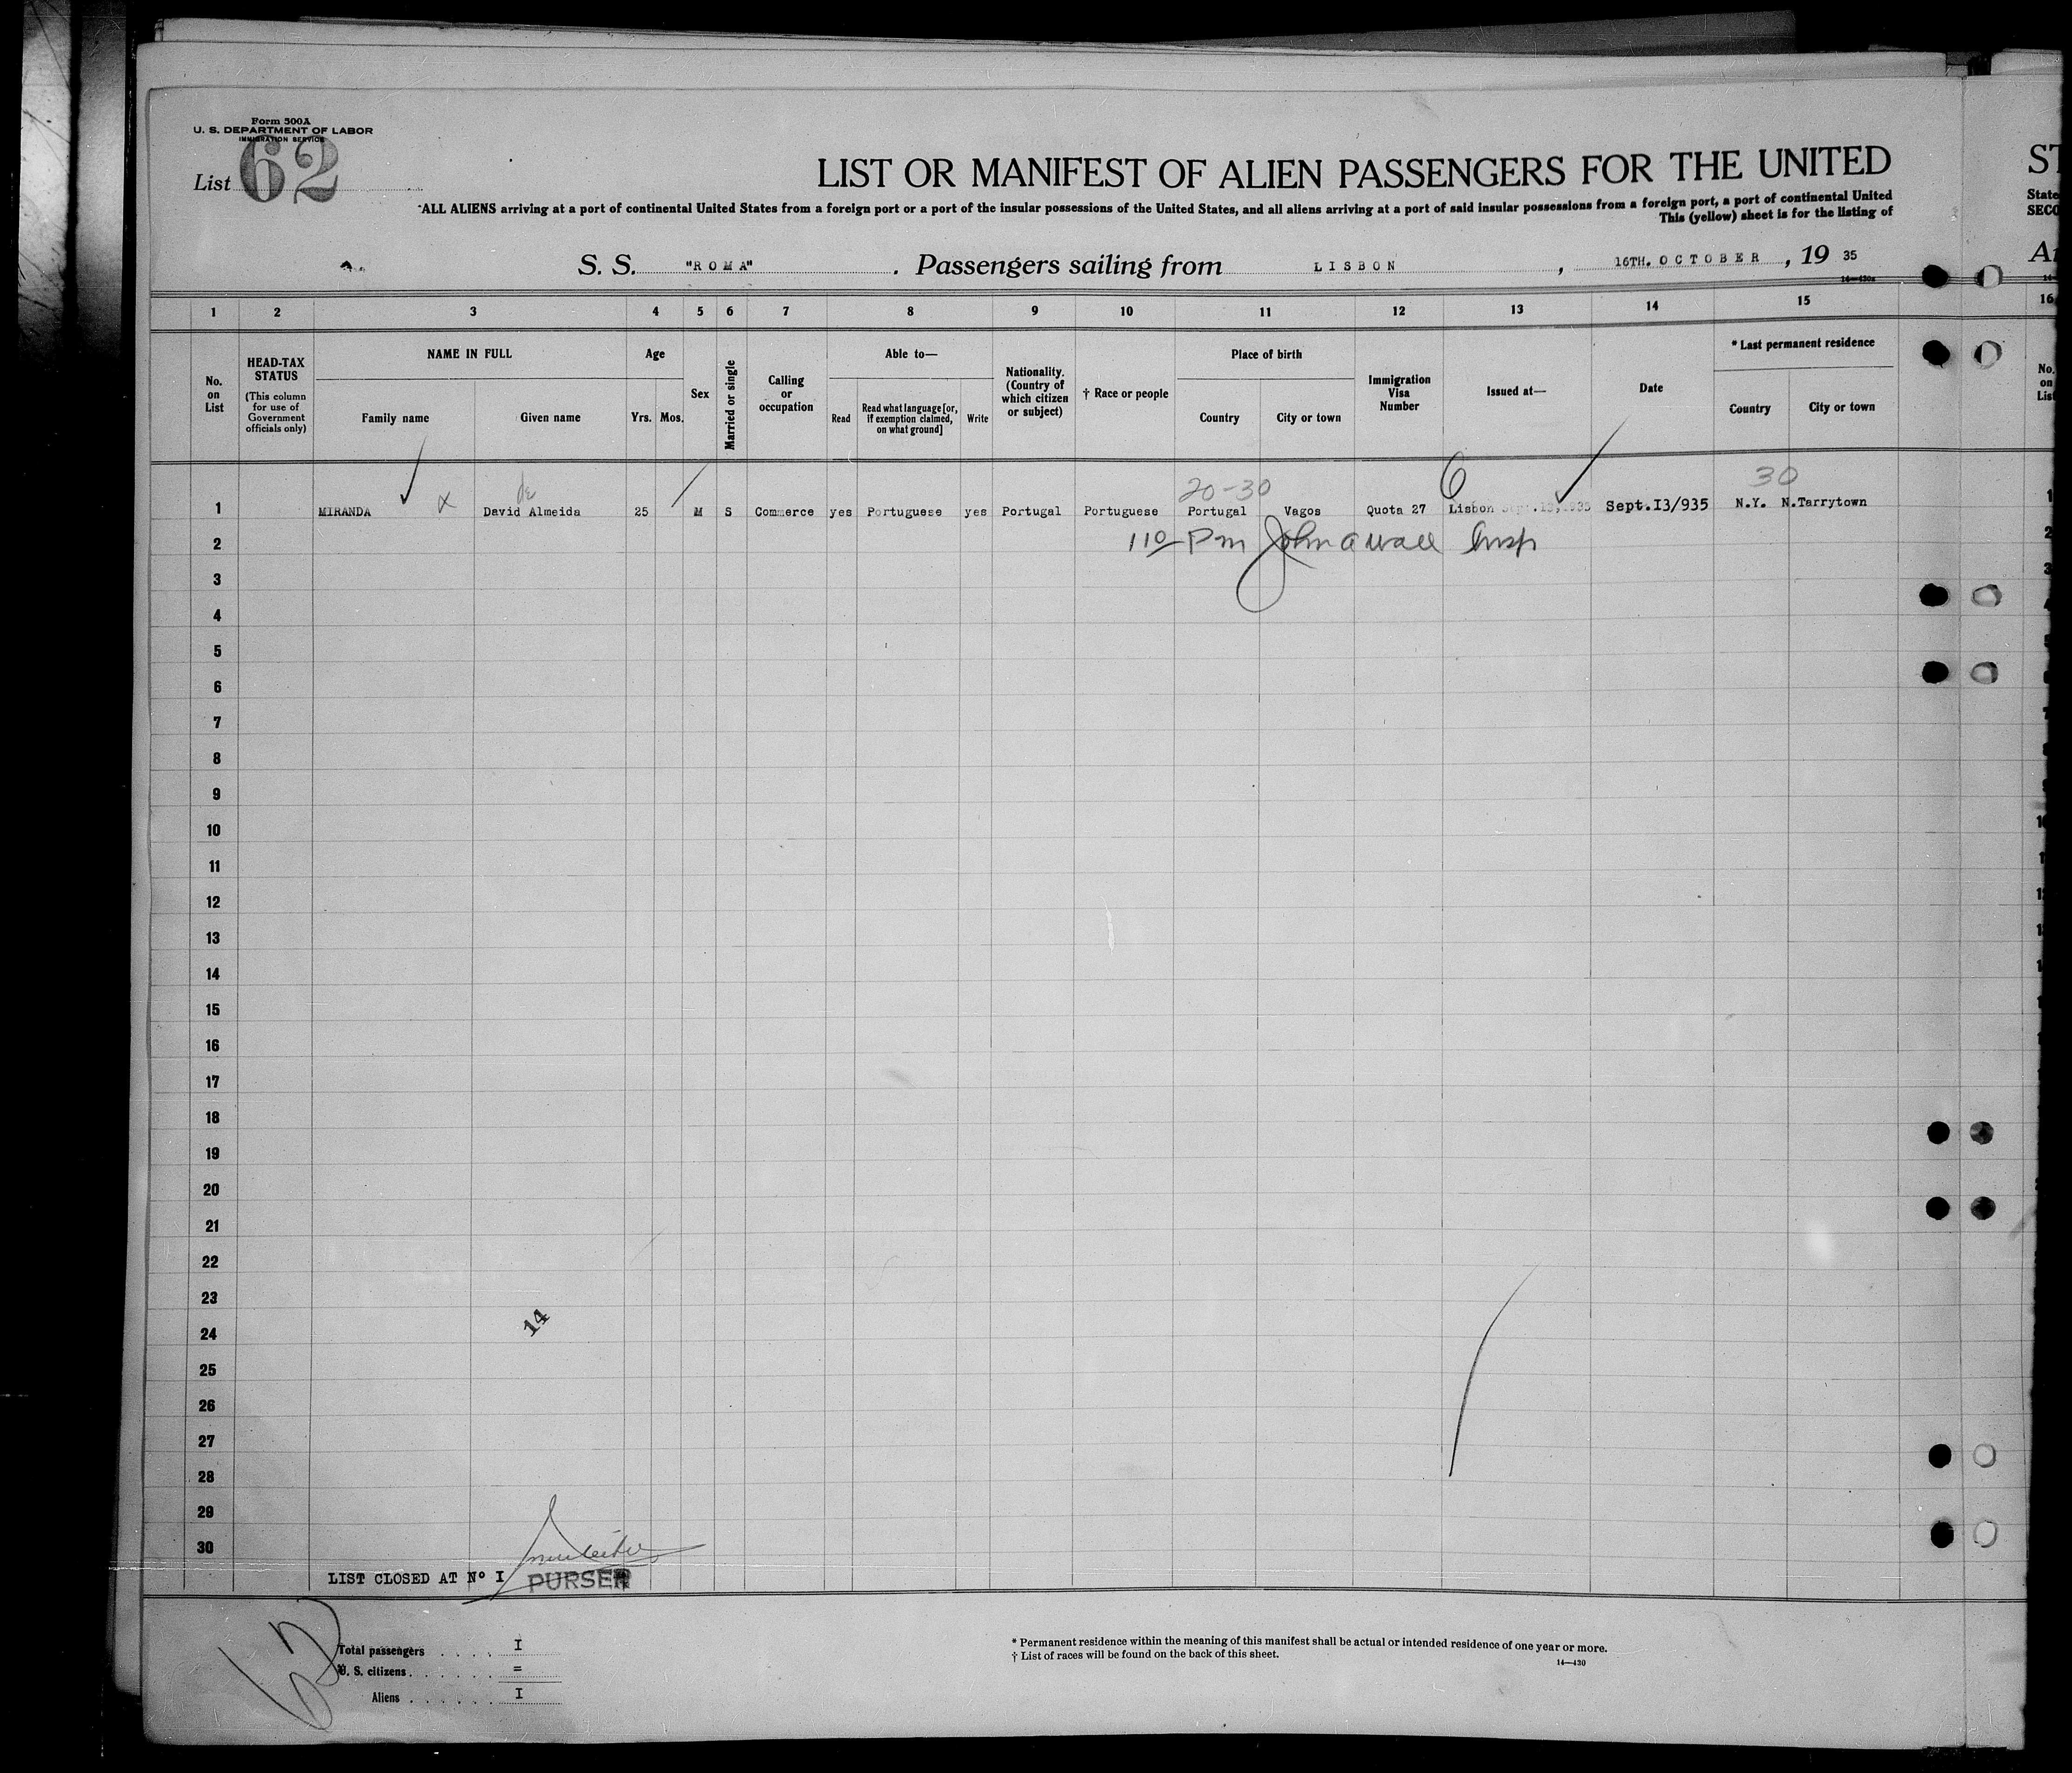 Form 500A
U. S. DEPARTMENT OF LABOR
IMMIGRATION SERVICE
List 62
LIST OR MANIFEST OF ALIEN PASSENGERS FOR THE UNITED
ST
ALL ALIENS arriving at a port of continental United States from a foreign port or a port of the insular possessions of the United States, and all aliens arriving at a port of said insular possessions from a foreign port, a port of continental United
State
This (yellow) sheet is for the listing of
SECO
S. S. "ROMA" . Passengers sailing from LISBON , 16TH. OCTOBER , 19 35
Ar
14—430a
1 2 3 4 5 6 7 8 9 10 11 12 13 14 15 16
No. on List
HEAD-TAX STATUS
(This column for use of Government officials only)
NAME IN FULL
Family name
Given name
Age
Yrs. Mos.
Sex
Married or single
Calling or occupation
Able to—
Read
Read what language [or, if exemption claimed, on what ground]
Write
Nationality. (Country of which citizen or subject)
† Race or people
Place of birth
Country
City or town
Immigration Visa Number
Issued at—
Date
* Last permanent residence
Country
City or town
No. on List
de 20-30 6 30
1 MIRANDA x David Almeida 25 M S Commerce yes Portuguese yes Portugal Portuguese Portugal Vagos Quota 27 Lisbon Sept.13,935 Sept.I3/935 N.Y. N.Tarrytown 1
2 110 Pm John a Wall Insp 2
3
4
5
6
7
8
9
10
11
12
13
14
15
16
17
18
19
20
21
22
23
14
24
25
26
27
28
29
30
LIST CLOSED AT Nº I PURSER
62
Total passengers . . . . I
U. S. citizens . . . . . . =
Aliens . . . . . . I
* Permanent residence within the meaning of this manifest shall be actual or intended residence of one year or more.
† List of races will be found on the back of this sheet.
14—430